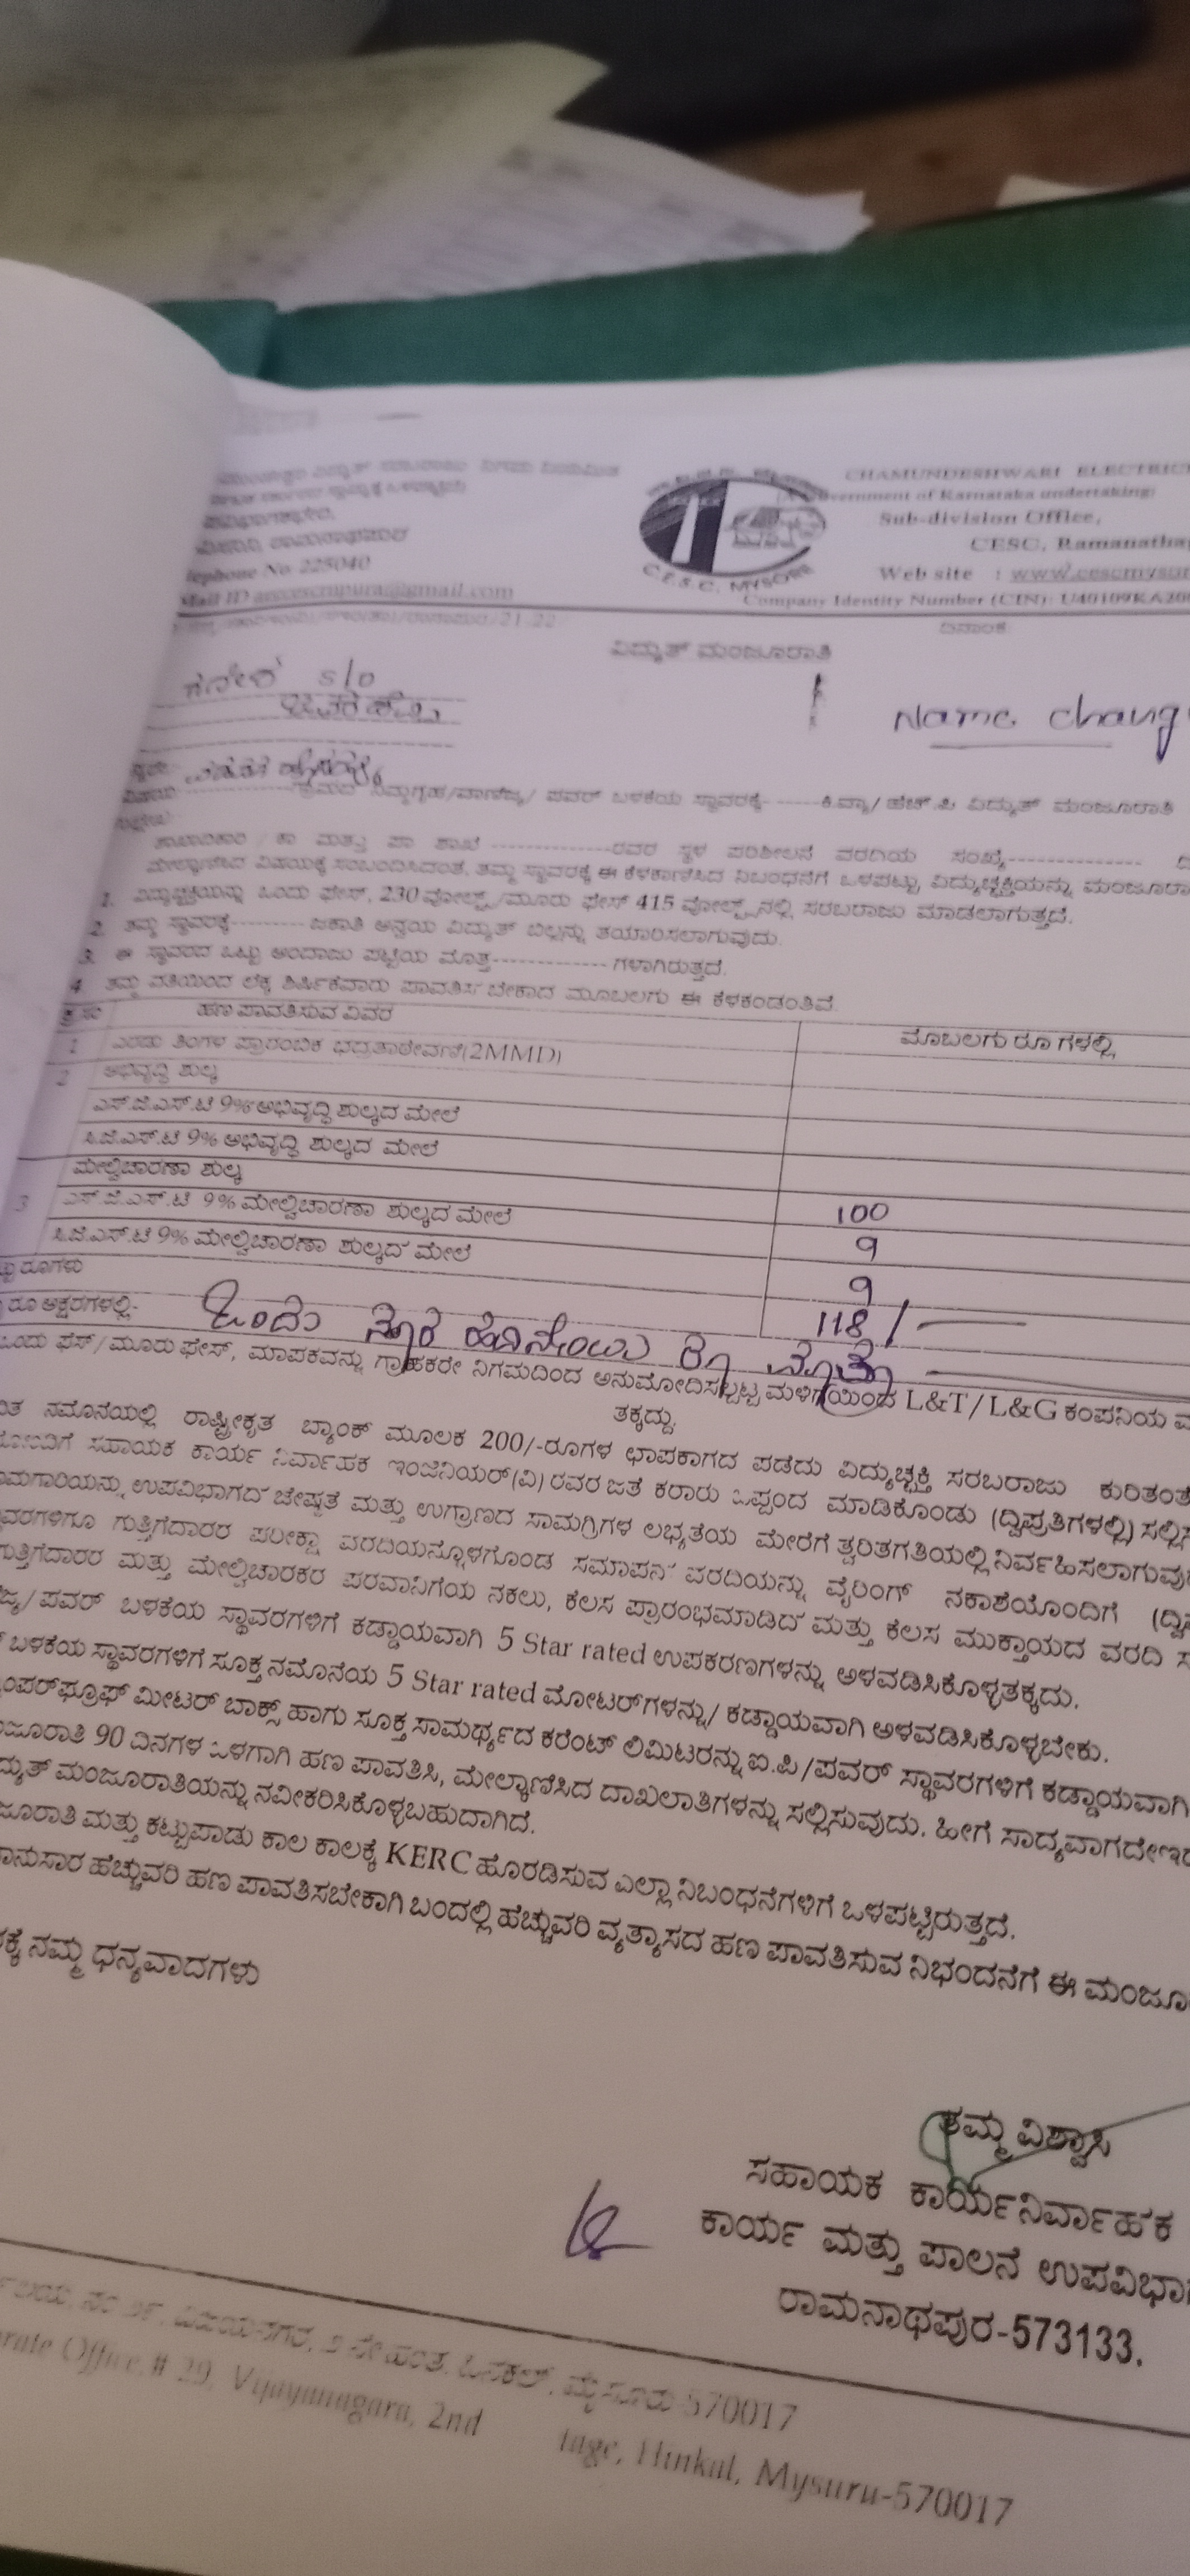 CHAMUNDESHWARI ELECTRIC
Government of Karnataka undertaking
Sub-division Office,
CESC, Ramanathap
Telephone No 225040
Web site : www.cescmysor
Mail ID aeecescrnpura@gmail.com
C.E.S.C. MYSORE
Company Identity Number (CIN): U40109KA200
ದಿನಾಂಕ
ವಿದ್ಯುತ್ ಮಂಜೂರಾತಿ
s/o
Name chang
ನಿಮ್ಮಗೃಹ/ವಾಣಿಜ್ಯ/ ಪವರ್ ಬಳಕೆಯ ಸ್ಥಾವರಕ್ಕೆ- -----ಕಿ.ವ್ಯಾ/ ಹೆಚ್.ಪಿ ವಿದ್ಯುತ್ ಮಂಜೂರಾತಿ
ಮತ್ತು ಪಾ ಶಾಖೆ --------------ರವರ ಸ್ಥಳ ಪರಿಶೀಲನೆ ವರದಿಯ ಸಂಖ್ಯೆ---------------
ಮೇಲ್ಕಾಣಿಸಿದ ವಿಷಯಕ್ಕೆ ಸಂಬಂದಿಸಿದಂತೆ, ತಮ್ಮ ಸ್ಥಾವರಕ್ಕೆ ಈ ಕೆಳಕಾಣಿಸಿದ ನಿಬಂಧನೆಗೆ ಒಳಪಟ್ಟು ವಿದ್ಯುಚ್ಛಕ್ತಿಯನ್ನು ಮಂಜೂರಾ
1. ವಿದ್ಯುಚ್ಛಕ್ತಿಯನ್ನು ಒಂದು ಫೇಸ್, 230 ವೋಲ್ಟ್ಸ್/ಮೂರು ಫೇಸ್ 415 ವೋಲ್ಟ್ಸ್‌ನಲ್ಲಿ ಸರಬರಾಜು ಮಾಡಲಾಗುತ್ತದೆ.
2. ತಮ್ಮ ಸ್ಥಾವರಕ್ಕೆ---------- ಜಕಾತಿ ಅನ್ವಯ ವಿದ್ಯುತ್ ಬಿಲ್ಲನ್ನು ತಯಾರಿಸಲಾಗುವುದು.
3. ಈ ಸ್ಥಾವರದ ಒಟ್ಟು ಅಂದಾಜು ಪಟ್ಟಿಯ ಮೊತ್ತ------------- ಗಳಾಗಿರುತ್ತದೆ.
4. ತಮ್ಮ ವತಿಯಿಂದ ಲೆಕ್ಕ ಶಿರ್ಷಿಕೆವಾರು ಪಾವತಿಸ ಬೇಕಾದ ಮೂಬಲಗು ಈ ಕೆಳಕಂಡಂತಿವೆ.
ಕ್ರ.ಸಂ ಹಣ ಪಾವತಿಸುವ ವಿವರ ಮೊಬಲಗು ರೂ ಗಳಲ್ಲಿ
1 ಎರಡು ತಿಂಗಳ ಪ್ರಾರಂಬಿಕ ಭದ್ರತಾಠೇವಣಿ(2MMD)
2 ಅಭಿವೃದ್ಧಿ ಶುಲ್ಕ
ಎಸ್.ಜಿ.ಎಸ್.ಟಿ 9% ಅಭಿವೃದ್ಧಿ ಶುಲ್ಕದ ಮೇಲೆ
ಸಿ.ಜಿ.ಎಸ್.ಟಿ 9% ಅಭಿವೃದ್ಧಿ ಶುಲ್ಕದ ಮೇಲೆ
ಮೇಲ್ವಿಚಾರಣಾ ಶುಲ್ಕ 100
3 ಎಸ್.ಜಿ.ಎಸ್.ಟಿ 9% ಮೇಲ್ವಿಚಾರಣಾ ಶುಲ್ಕದ ಮೇಲೆ 9
ಸಿ.ಜಿ.ಎಸ್.ಟಿ 9% ಮೇಲ್ವಿಚಾರಣಾ ಶುಲ್ಕದ ಮೇಲೆ 9
ಟ್ಟು ರೂಗಳು 118/-
ರೂ ಅಕ್ಷರಗಳಲ್ಲಿ- ಒಂದು ನೂರ ಹದಿನೇಂಟು ರೂ ಮಾತ್ರ
ಒಂದು ಫೆಸ್/ಮೂರು ಫೇಸ್, ಮಾಪಕವನ್ನು ಗ್ರಾಹಕರೇ ನಿಗಮದಿಂದ ಅನುಮೋದಿಸಲ್ಪಟ್ಟ ಮಳಿಗೆಯಿಂದ L&T/L&G ಕಂಪನಿಯ
ತಕ್ಕದ್ದು.
ನಮೊನೆಯಲ್ಲಿ ರಾಷ್ಟ್ರೀಕೃತ ಬ್ಯಾಂಕ್ ಮೂಲಕ 200/-ರೂಗಳ ಛಾಪಕಾಗದ ಪಡೆದು ವಿದ್ಯುಚ್ಛಕ್ತಿ ಸರಬರಾಜು ಕುರಿತಂತೆ
ಸಹಾಯಕ ಕಾರ್ಯ ನಿರ್ವಾಹಕ ಇಂಜಿನಿಯರ್(ವಿ) ರವರ ಜತೆ ಕರಾರು ಒಪ್ಪಂದ ಮಾಡಿಕೊಂಡು (ದ್ವಿಪ್ರತಿಗಳಲ್ಲಿ) ಸಲ್ಲಿಸ
ಾಮಗಾರಿಯನ್ನು ಉಪವಿಭಾಗದ ಜೇಷ್ಠತೆ ಮತ್ತು ಉಗ್ರಾಣದ ಸಾಮಗ್ರಿಗಳ ಲಭ್ಯತೆಯ ಮೇರೆಗೆ ತ್ವರಿತಗತಿಯಲ್ಲಿ ನಿರ್ವಹಿಸಲಾಗುವು
ವರಗಳಿಗೂ ಗುತ್ತಿಗೆದಾರರ ಪರೀಕ್ಷಾ ವರದಿಯನ್ನೊಳಗೊಂಡ ಸಮಾಪನ ವರದಿಯನ್ನು ವೈರಿಂಗ್ ನಕಾಶೆಯೊಂದಿಗೆ (ದ್ವಿ
ಗುತ್ತಿಗೆದಾರರ ಮತ್ತು ಮೇಲ್ವಿಚಾರಕರ ಪರವಾನಿಗೆಯ ನಕಲು, ಕೆಲಸ ಪ್ರಾರಂಭಮಾಡಿದ ಮತ್ತು ಕೆಲಸ ಮುಕ್ತಾಯದ ವರದಿ ಸ
ಜ್ಯ/ಪವರ್ ಬಳಕೆಯ ಸ್ಥಾವರಗಳಿಗೆ ಕಡ್ಡಾಯವಾಗಿ 5 Star rated ಉಪಕರಣಗಳನ್ನು ಅಳವಡಿಸಿಕೊಳ್ಳತಕ್ಕದು.
ಬಳಕೆಯ ಸ್ಥಾವರಗಳಿಗೆ ಸೂಕ್ತ ನಮೊನೆಯ 5 Star rated ಮೋಟರ್‌ಗಳನ್ನು/ ಕಡ್ಡಾಯವಾಗಿ ಅಳವಡಿಸಿಕೊಳ್ಳಬೇಕು.
ಂಪರ್‌ಫ್ರೂಫ್ ಮೀಟರ್ ಬಾಕ್ಸ್ ಹಾಗು ಸೂಕ್ತ ಸಾಮರ್ಥ್ಯದ ಕರೆಂಟ್ ಲಿಮಿಟರನ್ನು ಐ.ಪಿ/ಪವರ್ ಸ್ಥಾವರಗಳಿಗೆ ಕಡ್ಡಾಯವಾಗಿ
ಂಜೂರಾತಿ 90 ದಿನಗಳ ಒಳಗಾಗಿ ಹಣ ಪಾವತಿಸಿ, ಮೇಲ್ಕಾಣಿಸಿದ ದಾಖಲಾತಿಗಳನ್ನು ಸಲ್ಲಿಸುವುದು. ಹೀಗೆ ಸಾದ್ಯವಾಗದೇಇದ
ದ್ಯುತ್ ಮಂಜೂರಾತಿಯನ್ನು ನವೀಕರಿಸಿಕೊಳ್ಳಬಹುದಾಗಿದೆ.
ಜೂರಾತಿ ಮತ್ತು ಕಟ್ಟುಪಾಡು ಕಾಲ ಕಾಲಕ್ಕೆ KERC ಹೊರಡಿಸುವ ಎಲ್ಲಾ ನಿಬಂಧನೆಗಳಿಗೆ ಒಳಪಟ್ಟಿರುತ್ತದೆ.
ಾನುಸಾರ ಹೆಚ್ಚುವರಿ ಹಣ ಪಾವತಿಸಬೇಕಾಗಿ ಬಂದಲ್ಲಿ ಹೆಚ್ಚುವರಿ ವ್ಯತ್ಯಾಸದ ಹಣ ಪಾವತಿಸುವ ನಿಭಂದನೆಗೆ ಈ ಮಂಜೂ
ಕ್ಕೆ ನಮ್ಮ ಧನ್ಯವಾದಗಳು
ತಮ್ಮ ವಿಶ್ವಾಸಿ
ಸಹಾಯಕ ಕಾರ್ಯನಿರ್ವಾಹಕ
ಕಾರ್ಯ ಮತ್ತು ಪಾಲನೆ ಉಪವಿಭಾ
ರಾಮನಾಥಪುರ-573133.
ವಿಜಯನಗರ, 2 ನೇ ಹಂತ, ಹಿನಕಲ್, ಮೈಸೂರು 570017
rate Office, # 29, Vijayanagara, 2nd tage, Hinkal, Mysuru-570017